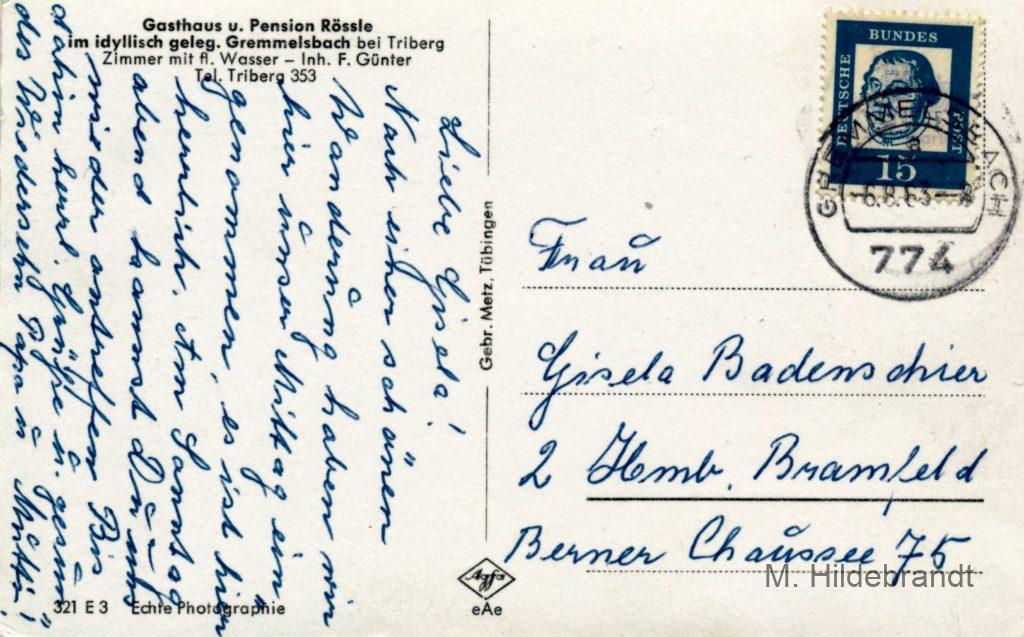 Gasthaus u. Pension Rössle
im idyllisch geleg. Gremmelsbach bei Triberg
Zimmer mit fl. Wasser – Inh. F. Günter
Tel. Triberg 353
Liebe Gisela!
Nach einer schönen
Wanderung haben wir
hier unser Mittag ein
genommen, es ist hier
herrlich. Am Sonntag
abend kannst Du uns
wieder antreffen. Bis
dahin herzl. Grüße u.
Wiedersehn Papa u. Mutti!
Gebr. Metz, Tübingen
321 E 3 Echte Photographie
Agfa
eAe
DEUTSCHE
BUNDES
POST
15
GREMMELSBACH
-6.8.63-8
774
Frau
Gisela Badenschier
2 Hmb. Bramfeld
Berner Chaussee 75
M. Hildebrandt